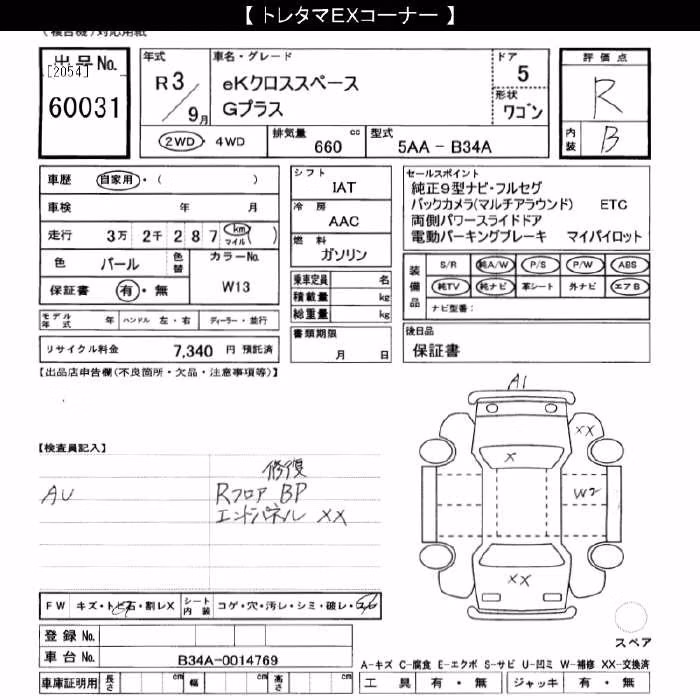 【 トレタマEXコーナー 】
(複合機)対応用紙
出品No.
[2054]
60031
年式
R3/9月
車名・グレード
eKクロススペース
Gプラス
ドア
5
形状
ワゴン
評価点
R
内装
B
2WD・4WD
排気量
660 cc
型式
5AA − B34A
車歴 自家用・( )
車検 年 月
走行 3万 2千 2 8 7 (km マイル)
色 パール 色替 カラーNo. W13
保証書 有・無
モデル年式 年 ハンドル 左・右 ディーラー・並行
リサイクル料金 7,340 円 預託済
シフト
IAT
冷房
AAC
燃料
ガソリン
乗車定員 名
積載量 kg
総重量 kg
書類期限
月 日
セールスポイント
純正9型ナビ・フルセグ
バックカメラ(マルチアラウンド) ETC
両側パワースライドドア
電動パーキングブレーキ マイパイロット
装備品
S/R 純A/W P/S P/W ABS
純TV 純ナビ 革シート 外ナビ エアB
ナビ型番:
後日品
保証書
【出品店申告欄(不良箇所・欠品・注意事項等)】
【検査員記入】
AU
修復
Rフロア BP
エンドパネル XX
A1
XX
X
W2
XX
スペア
FW キズ・トビ石・割レX シート内装 コゲ・穴・汚レ・シミ・破レ・スレ
登録 No.
車台 No. B34A-0014769
車庫証明用 長さ cm 幅 cm 高さ cm
A-キズ C-腐食 E-エクボ S-サビ U-凹ミ W-補修 XX-交換済
工具 有・無 ジャッキ 有・無